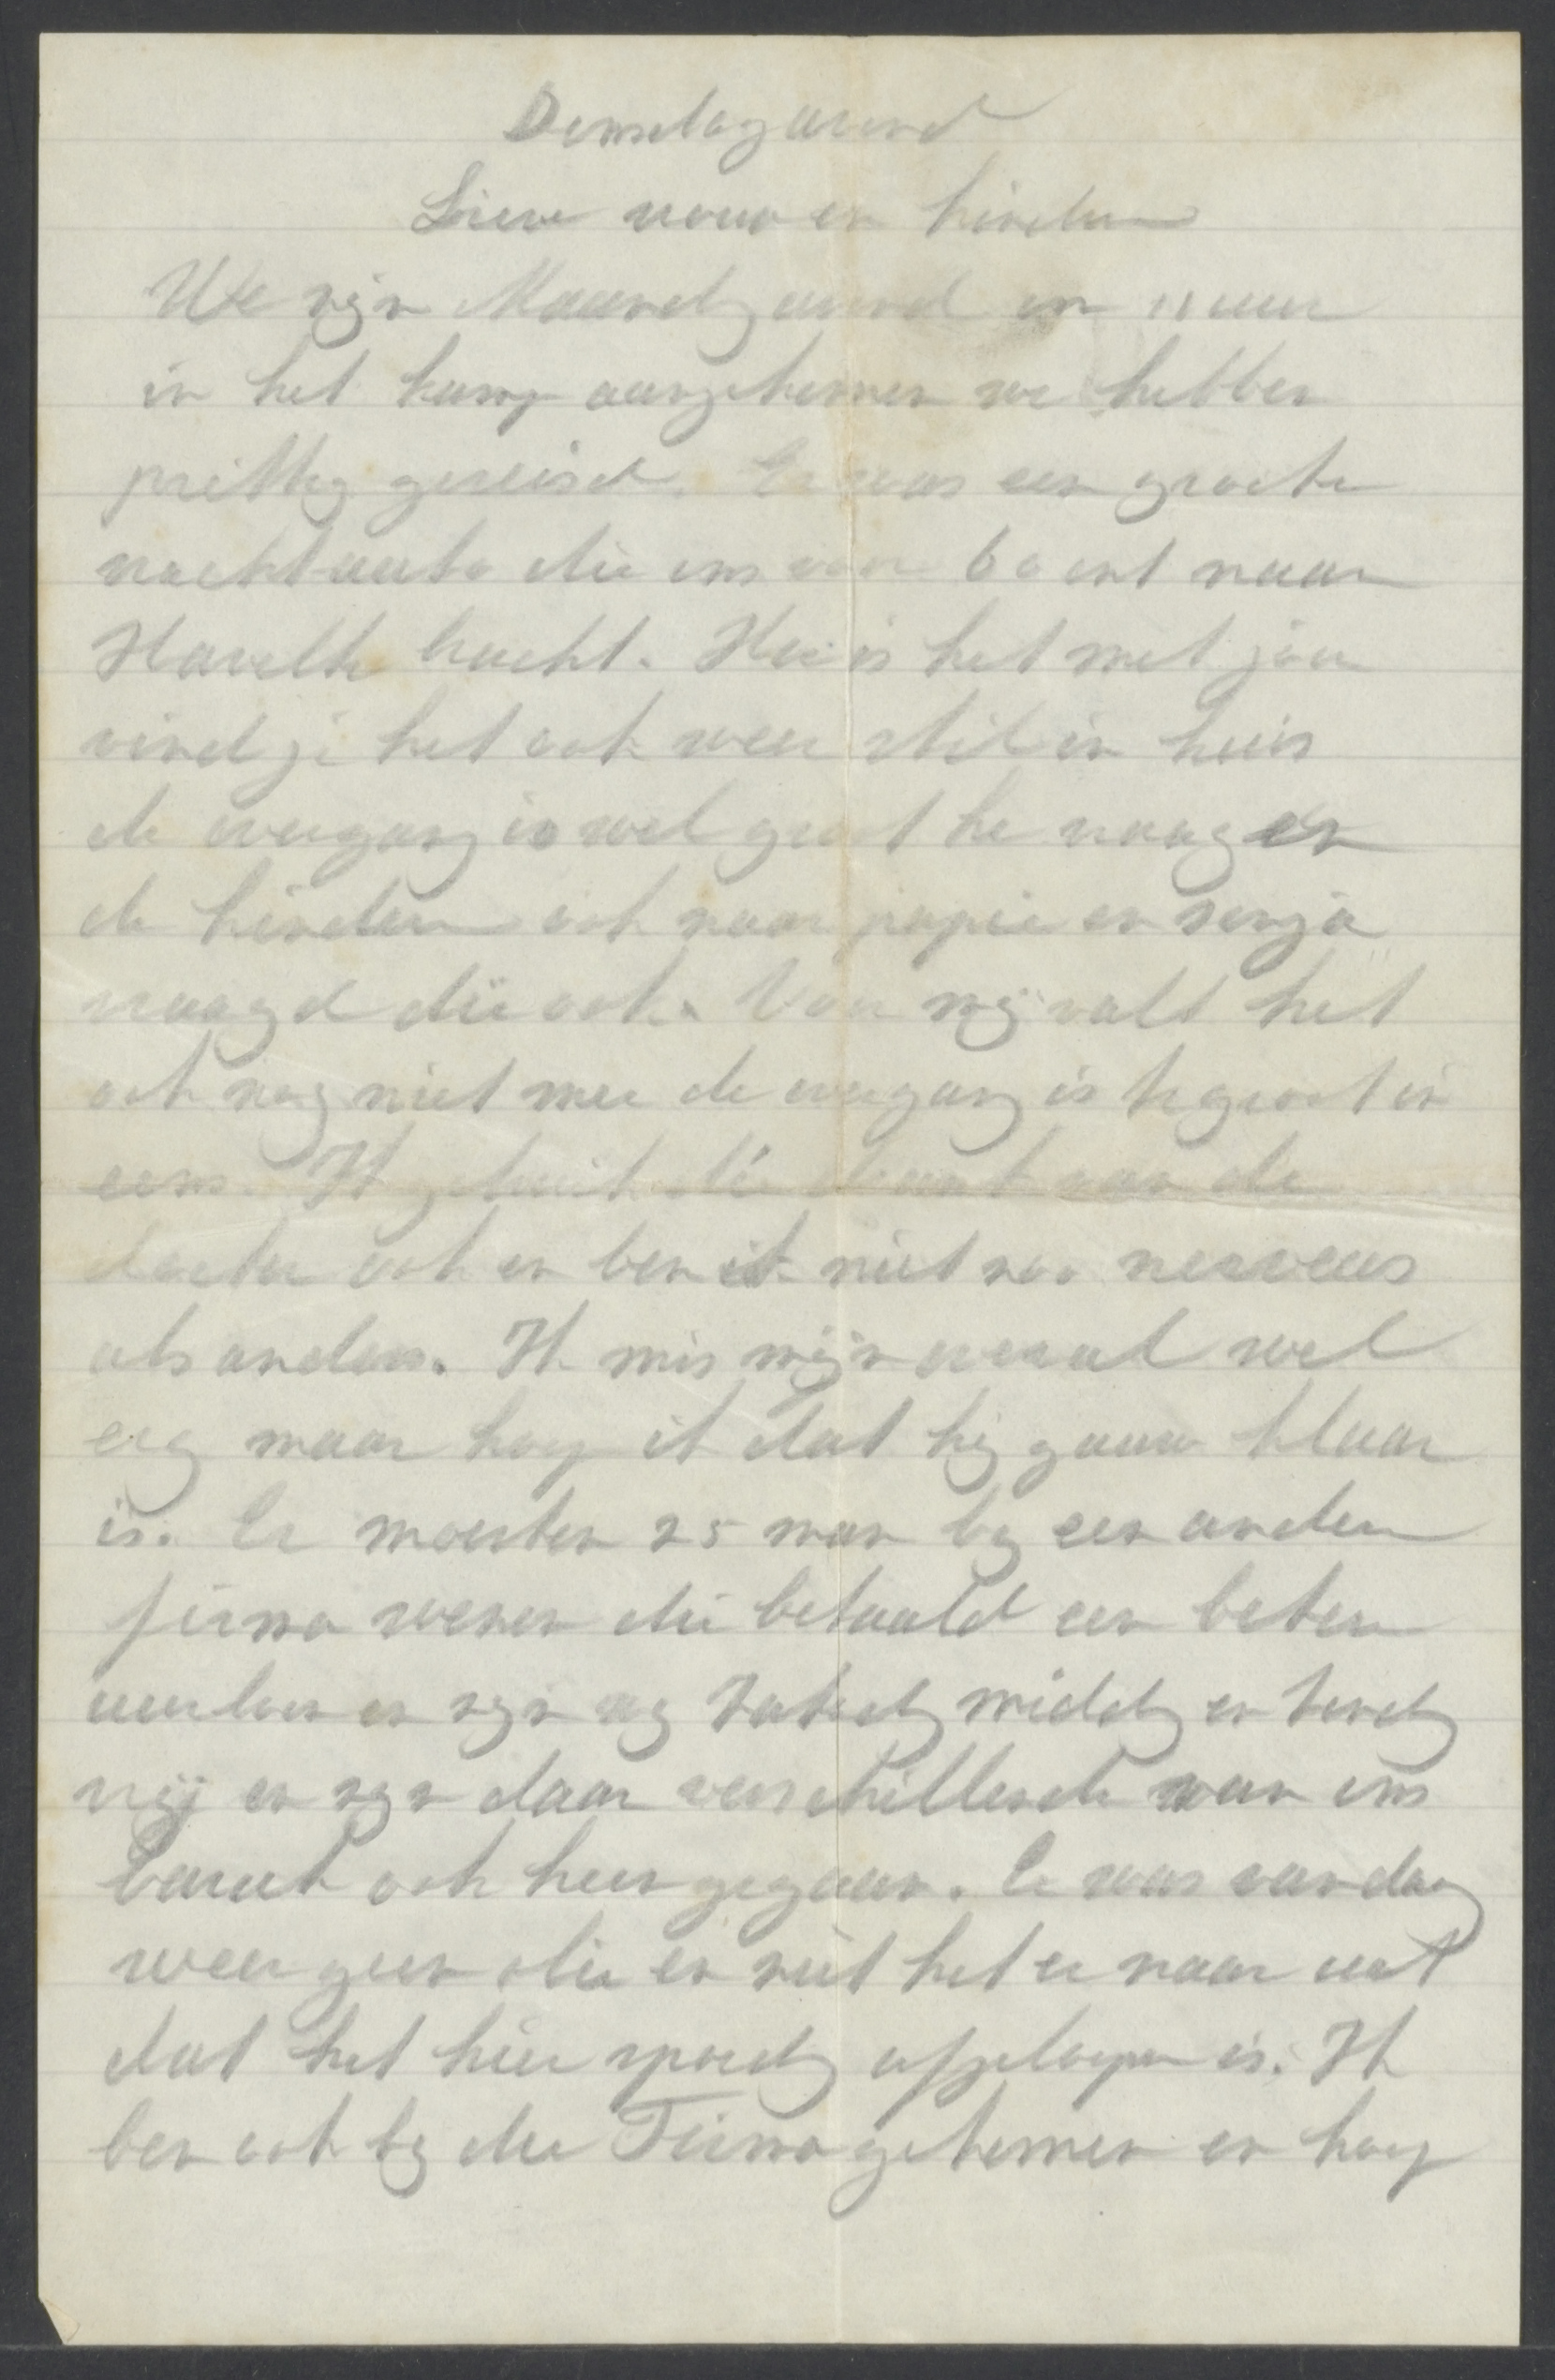 Densdag avond
Lieve vrouw en kindern
We zijn Maandg avond om 11 uur
in het kamp aangekomen we hebben
prittig gereisd. Er was een groote
vrachtauto die ons voor 60 cnt naar
Havelte bracht. Hoe is het met jou
vind je het ook weer stil in huis
de overgang is wel groot he vraagen
de kindern ook naar papie en sonja
vraagd die ook. Voor mij valt het
ook nog niet mee de overgang is te groot in
eens. Ik gebruik die drank van de
docter ook en ben ik niet zoo nerveus
als anders. Ik mis mijn overal wel
erg maar hoop ik dat hij gauw klaar
is. Er moesten 25 man bij een andere
firma wezen die betaald een betere
uurloon en zijn wij Zaterdg middg en Zondg
vrij en zijn daar verschillende van ons
barak ook heen gegaan. Er was vandaag
weer geen olie en ziet het er naar uit
dat het hier spoedg afgeloopen is. Ik
ben ook bij die Firma gekomen en hoop